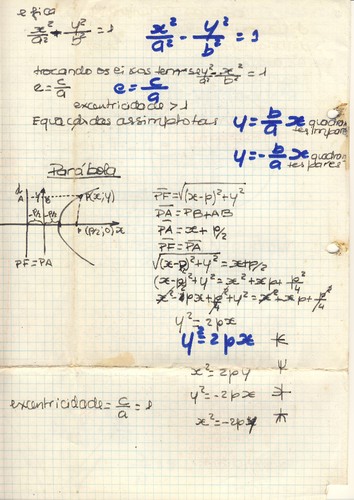 e fica
x²/a² - y²/b² = 1
x²/a² - y²/b² = 1
trocando os eixos temos y²/a² - x²/b² = 1
e = c/a
e = c/a
excentricidade > 1
Equação das assimptotas
y = b/a x quadrantes ímpares
y = -b/a x quadrantes pares
Parábola
d
A
B
P(x,y)
(P/2,0) x
PF = PA
PF = √(x-p)² + y²
PA = PB + AB
PA = x + p/2
PF = PA
√(x-p/2)² + y² = x + p/2
(x-p/2)² + y² = x² + xp + p²/4
x² - xp + p²/4 + y² = x² + xp + p²/4
y² = 2px
y² = 2px
x² = 2py
y² = -2px
x² = -2py
excentricidade = c/a = 1